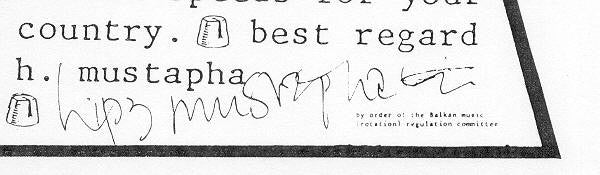 speeds for your
country. best regard
h. mustapha
hijaz mustapha
by order of the Balkan music
(rotation) regulation committee